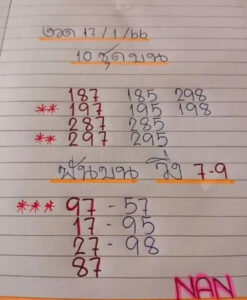 งวด 17/1/66
10 ชุดบน
187 185 298
** 197 195 198
287 285
** 297 295
ฟันบน วิ่ง 7-9
*** 97 - 57
17 - 95
27 - 98
87
NAN